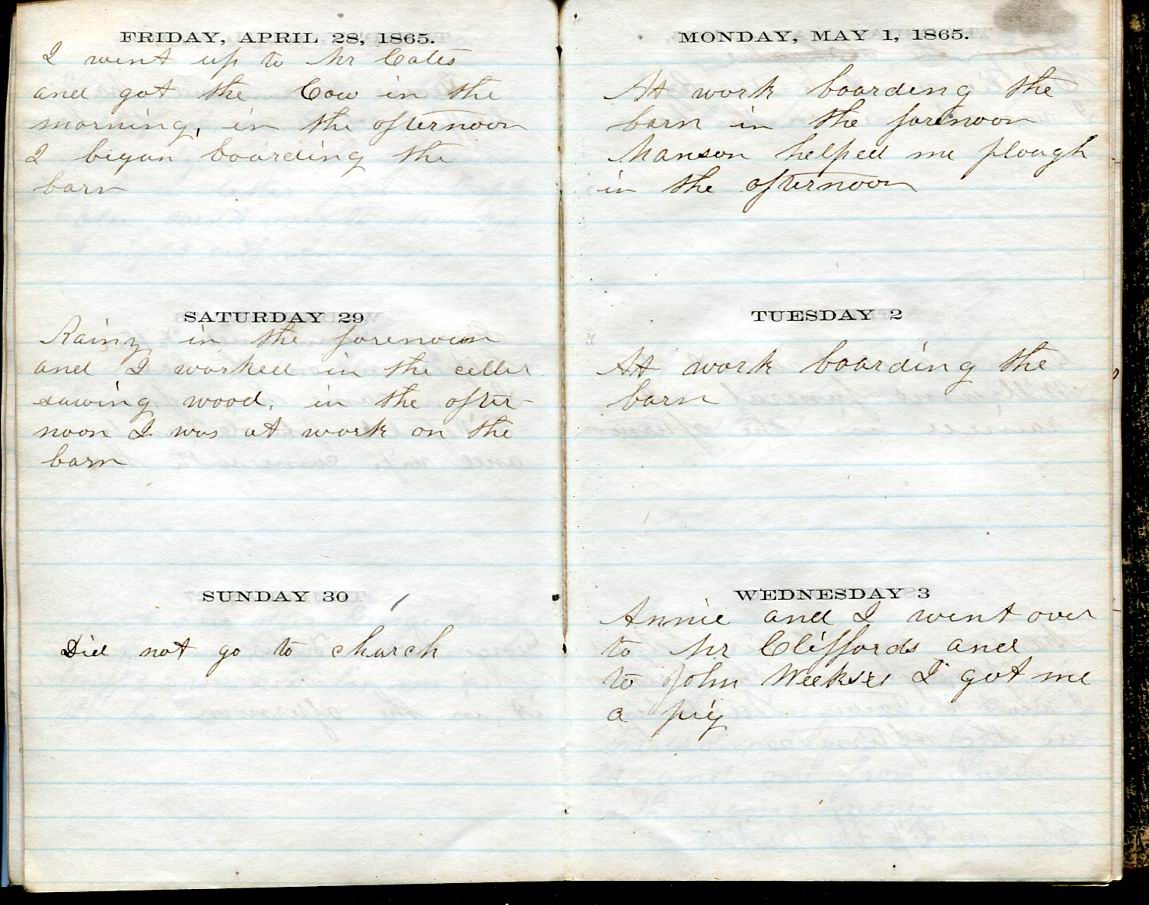 FRIDAY, APRIL 28, 1865.
I went up to Mr Cates
and got the Cow in the
morning, in the afternoon
I began boarding the
barn
SATURDAY 29
Rainy in the forenoon
and I worked in the celler
sawing wood. in the after-
noon I was at work on the
barn
SUNDAY 30
Did not go to church
MONDAY, MAY 1, 1865.
At work boarding the
barn in the forenoon
Manson helped me plough
in the afternoon
TUESDAY 2
At work boarding the
barn
WEDNESDAY 3
Annie and I went over
to Mr Cliffords and
to John Weekses I got me
a pig